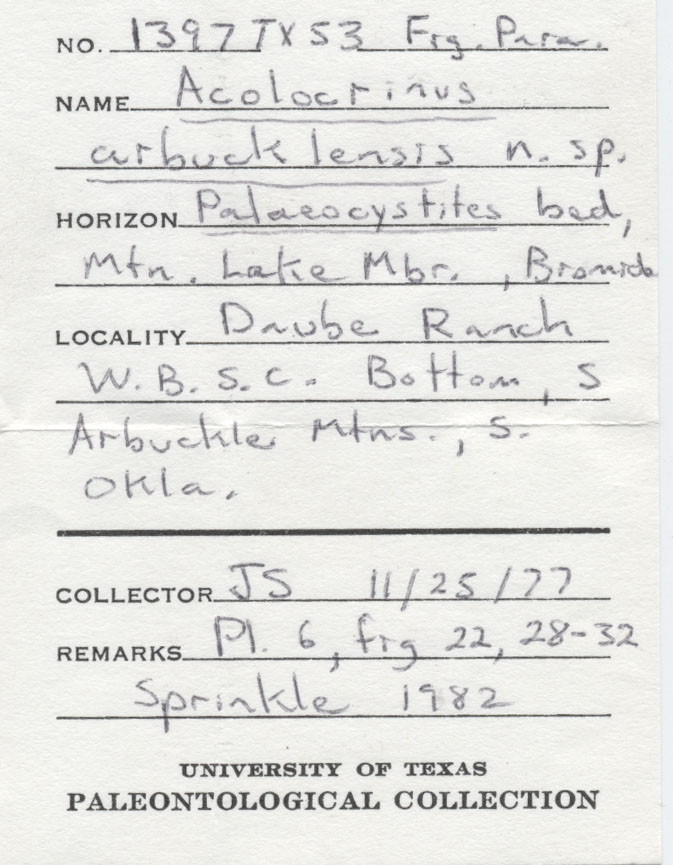 NO. 1397TX53 Frg. Para.
NAME Acolocrinus
arbucklensis n. sp.
HORIZON Palaeocystites bed,
Mtn. Lake Mbr., Bromide
LOCALITY Daube Ranch
W.B.S.C. Bottom, S
Arbuckle Mtns., S.
Okla.
COLLECTOR JS 11/25/77
REMARKS Pl. 6, frg 22, 28-32
Sprinkle 1982
UNIVERSITY OF TEXAS
PALEONTOLOGICAL COLLECTION